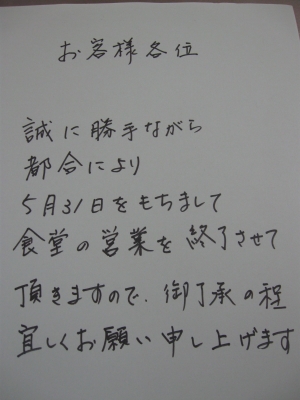 お客様各位
誠に勝手ながら
都合により
5月31日をもちまして
食堂の営業を終了させて
頂きますので、御了承の程
宜しくお願い申し上げます